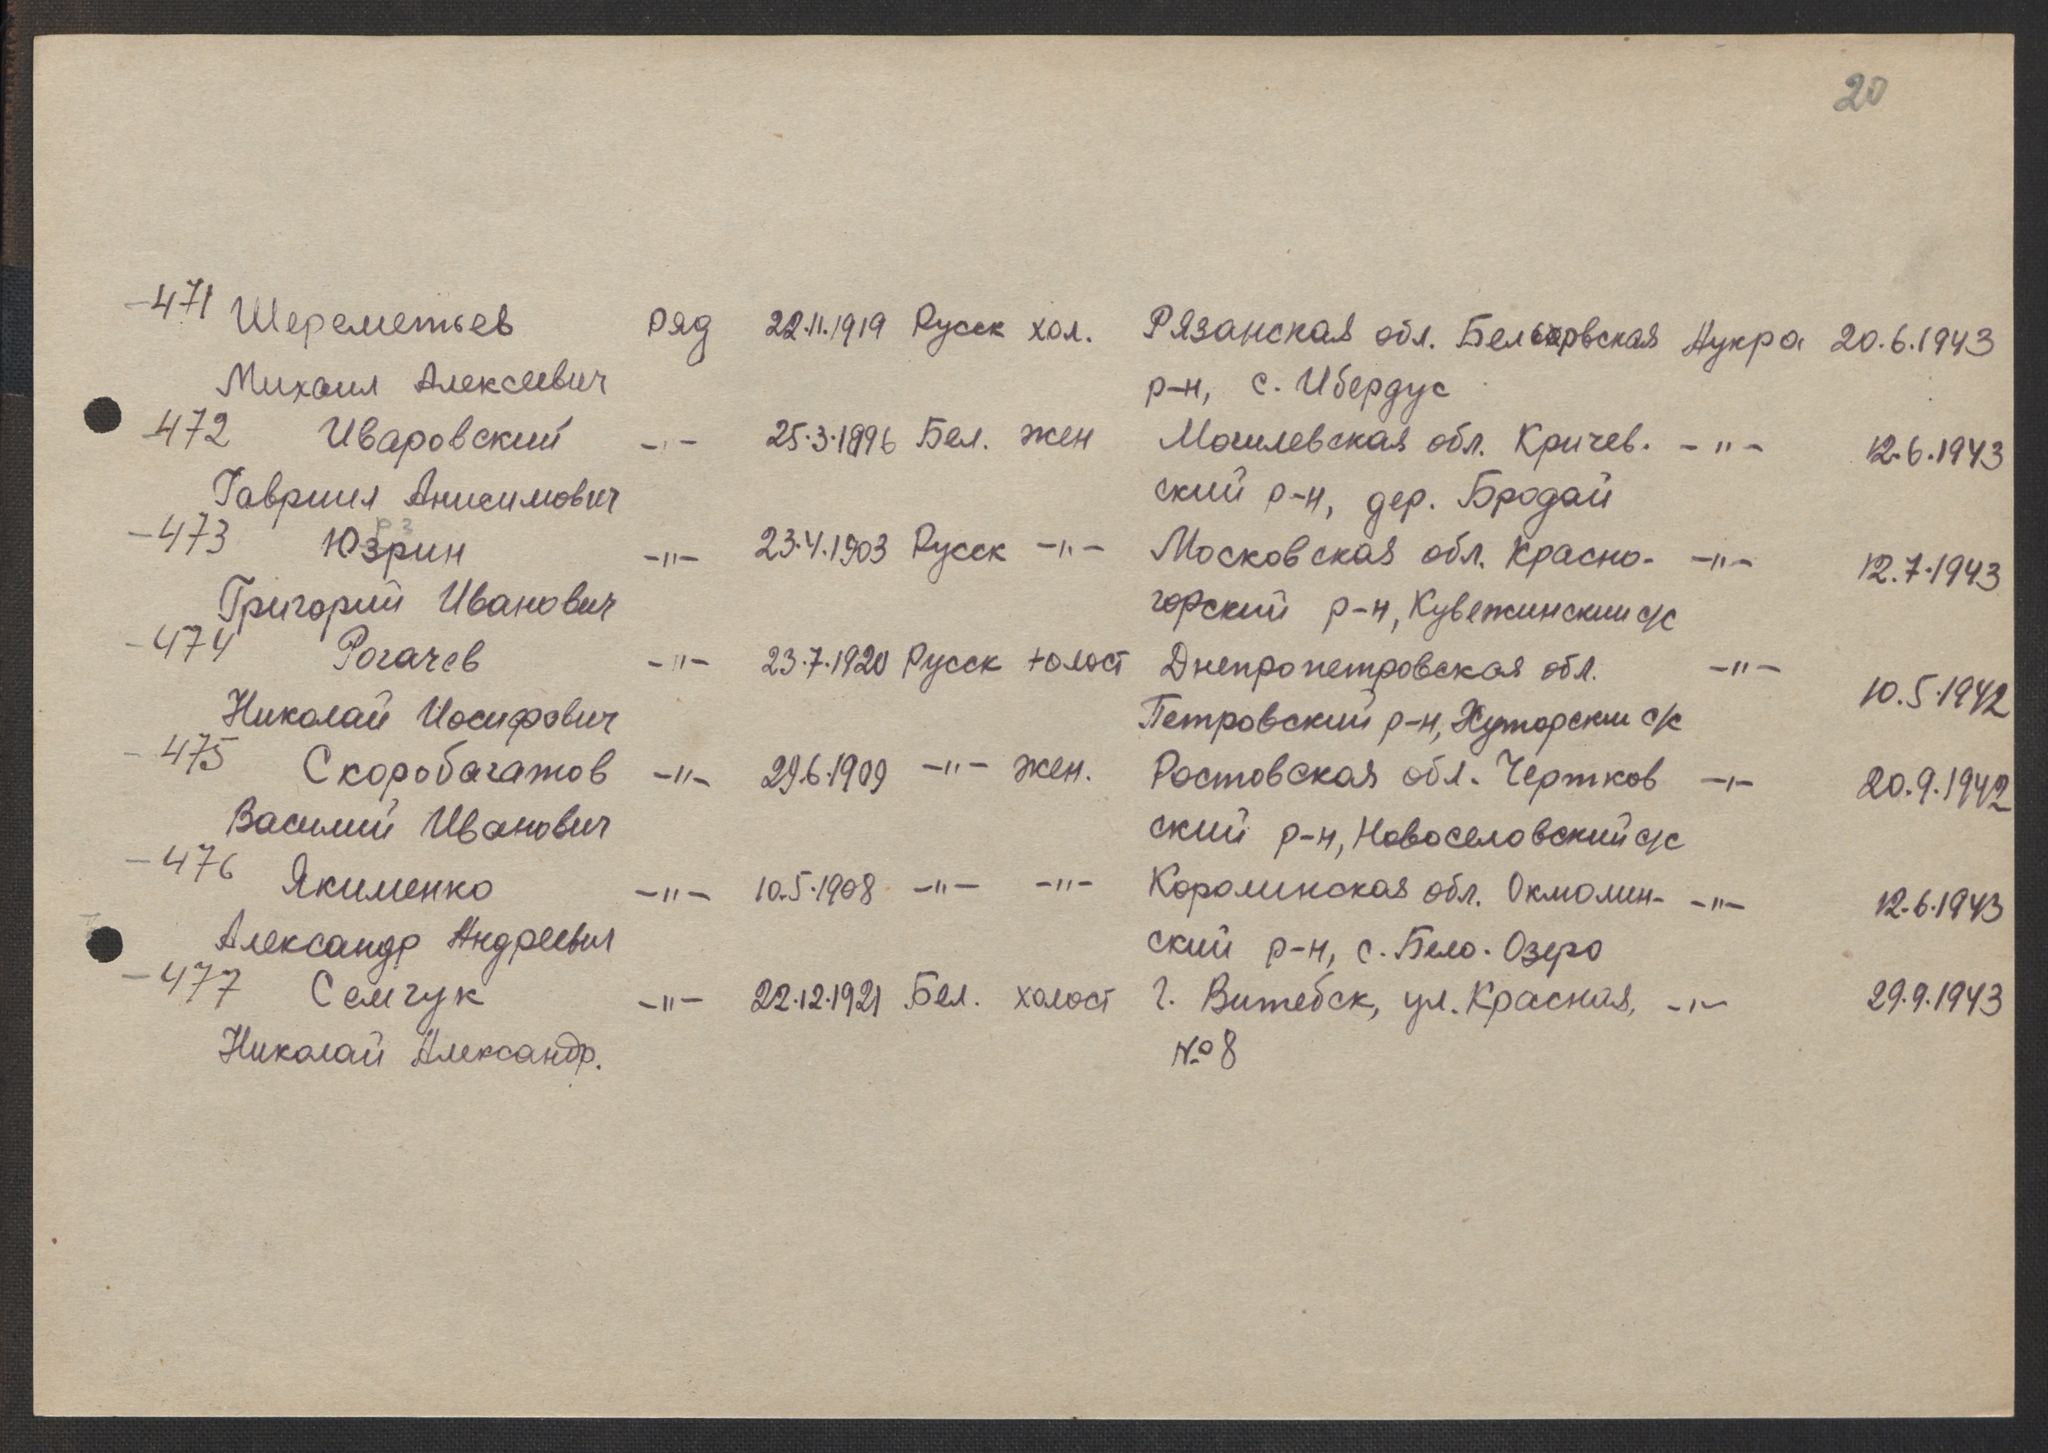 20
-471 Шереметьев ряд 22.11.1919 Русск хол. Рязанская обл. Бельковская Аукра 20.6.1943
Михаил Алексеевич р-н, с. Ибердус
-472 Иваровский -"- 25.3.1896 Бел. жен Могилевская обл. Кричев- -"- 12.6.1943
Гавриил Анисимович ский р-н, дер. Бродай
-473 Юзрин -"- 23.4.1903 Русск -"- Московская обл. Красно- -"- 12.7.1943
Григорий Иванович горский р-н, Кувежинский с/с
-474 Рогачев -"- 23.7.1920 Русск холост Днепропетровская обл. -"- 10.5.1942
Николай Иосифович Петровский р-н, Хуторский с/с
-475 Скоробагатов -"- 29.6.1909 -"- жен. Ростовская обл. Чертков -"- 20.9.1942
Василий Иванович ский р-н, Новоселовский с/с
-476 Якименко -"- 10.5.1908 -"- -"- Королинская обл. Окмолин- -"- 12.6.1943
Александр Андреевич ский р-н, с. Бело-Озеро
-477 Семчук -"- 22.12.1921 Бел. холост г. Витебск, ул. Красная, -"- 29.9.1943
Николай Александр. № 8